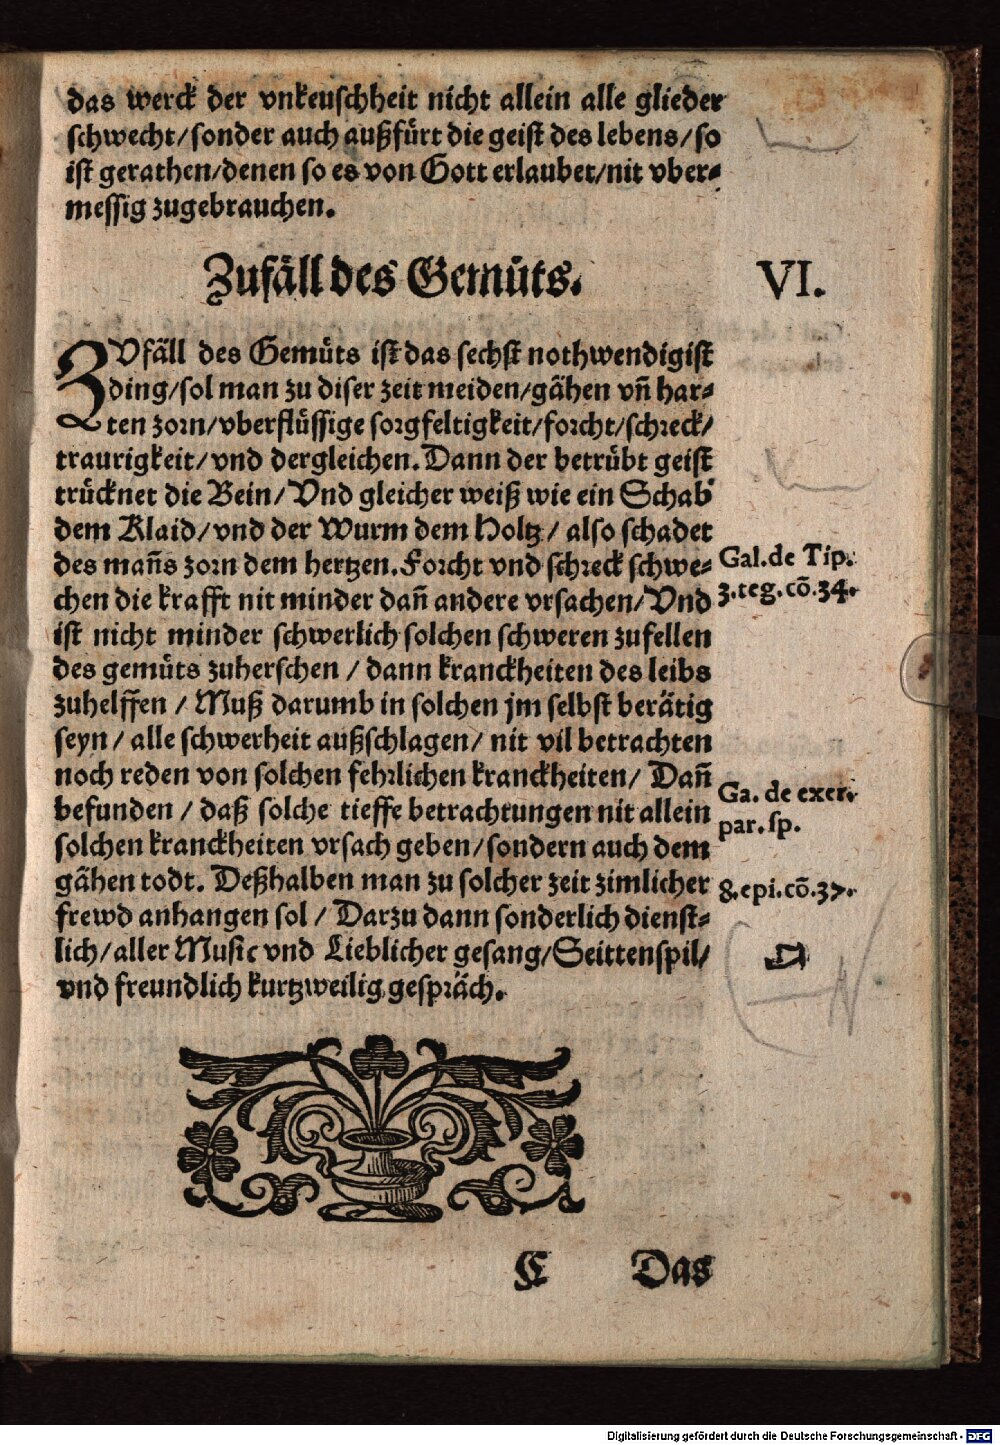 das werck der vnkeuschheit nicht allein alle glieder
schwecht/sonder auch außfürt die geist des lebens/so
ist gerathen/denen so es von Gott erlaubet/nit vber-
messig zugebrauchen.
Zufäll des Gemüts.
VI.
ZVfäll des Gemüts ist das sechst nothwendigist
ding/sol man zu diser zeit meiden/gähen vñ har-
ten zorn/vberflüssige sorgfeltigkeit/forcht/schreck/
traurigkeit/vnd dergleichen. Dann der betrübt geist
trücknet die Bein/Vnd gleicher weiß wie ein Schab
dem Klaid/vnd der Wurm dem Holtz/ also schadet
des mañs zorn dem hertzen. Forcht vnd schreck schwe-
Gal. de Tip.
chen die krafft nit minder dañ andere vrsachen/Vnd
3. teg. cõ. 34.
ist nicht minder schwerlich solchen schweren zufellen
des gemüts zuherschen / dann kranckheiten des leibs
zuhelffen / Muß darumb in solchen jm selbst berätig
seyn / alle schwerheit außschlagen/ nit vil betrachten
noch reden von solchen fehrlichen kranckheiten/ Dañ
Ga. de exer.
befunden / daß solche tieffe betrachtungen nit allein
par. sp.
solchen kranckheiten vrsach geben/sondern auch dem
gähen todt. Deßhalben man zu solcher zeit zimlicher
8. epi. cõ. 37.
frewd anhangen sol / Darzu dann sonderlich dienst-
lich/aller Music vnd Lieblicher gesang/Seittenspil/
vnd freundlich kurtzweilig gespräch.
C Das
Digitalisierung gefördert durch die Deutsche Forschungsgemeinschaft - DFG